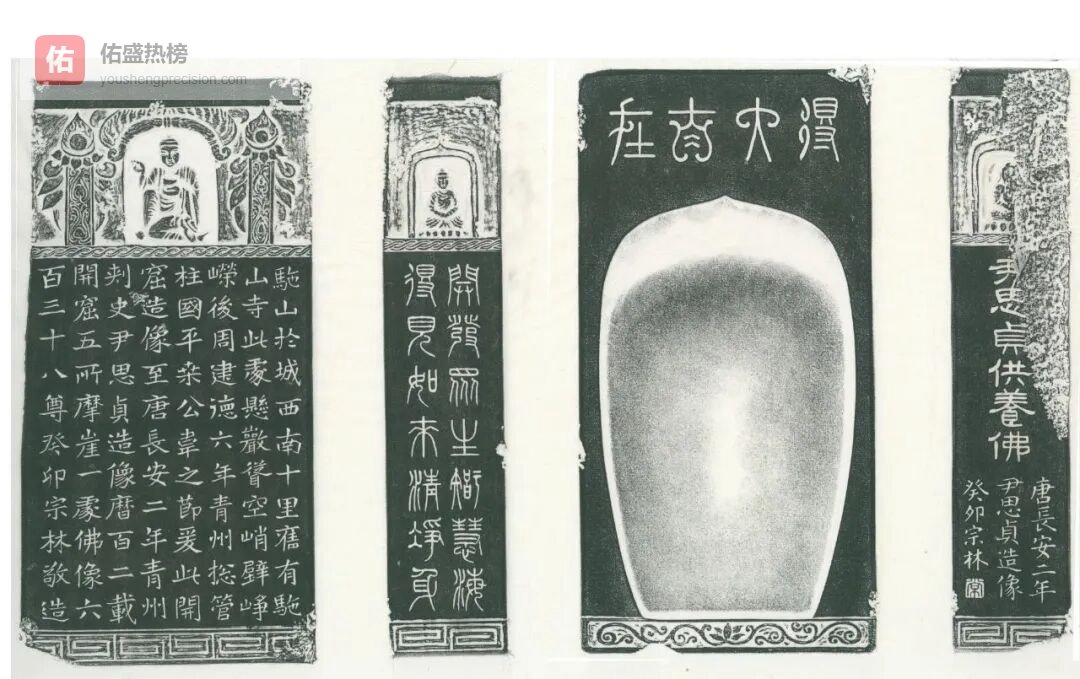 佑
佑盛热榜
youshengprecision.com
駞山於城西南十里舊有駞
山寺此處懸巖聳空峭壁崢
嶸後周建德六年青州揔管
柱國平桒公韋之節爰此開
窟造像至唐長安二年青州
刾史尹思貞造像曆百二載
開窟五所摩崖一處佛像六
百三十八尊癸卯宗林敬造
開發眾生智慧海
得見如來清淨身
得大自在
尹思貞供養佛
唐長安二年
尹思貞造像
癸卯宗林